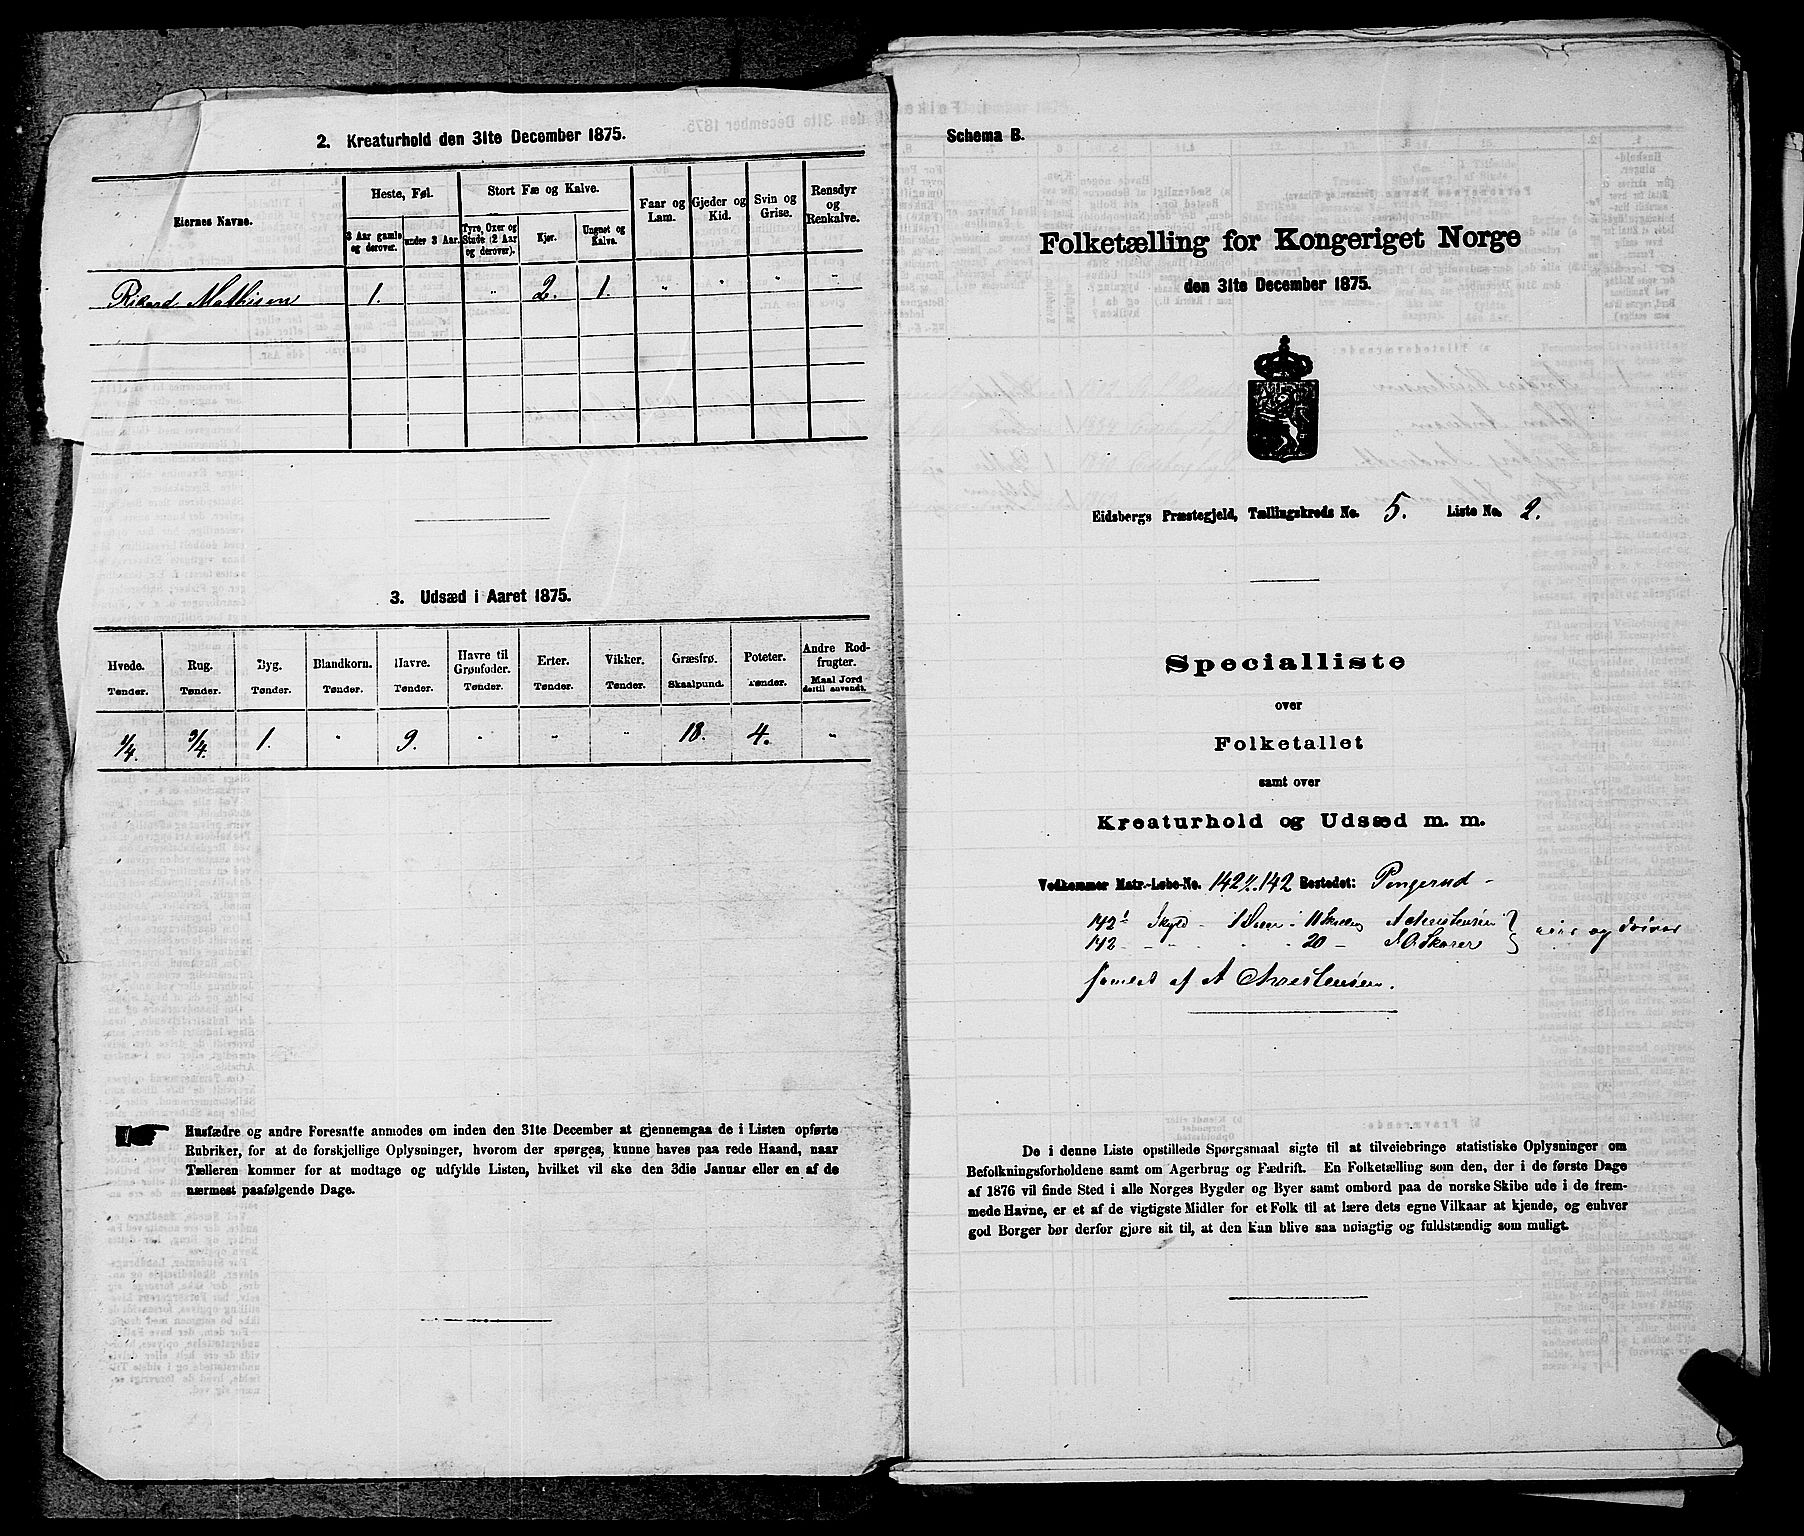 2. Kreaturhold den 31te December 1875.
Eiernes Navne.
Heste, Føl.
Stort Fæ og Kalve.
Faar og Lam.
Gjeder og Kid.
Svin og Grise.
Rensdyr og Renkalve.
3 Aar gamle og derover.
under 3 Aar.
Tyre, Oxer og Stude (2 Aar og derover).
Kjør.
Ungnøt og Kalve.
Rikard Mathisen 1. " 2. 1. " " " "
3. Udsæd i Aaret 1875.
Hvede. Rug. Byg. Blandkorn. Havre. Havre til Grønfoder. Erter. Vikker. Græsfrø. Poteter. Andre Rodfrugter.
Tønder. Tønder. Tønder. Tønder. Tønder. Tønder. Tønder. Tønder. Skaalpund. Tønder. Maal Jord dertil anvendt.
1/4. 3/4. 1. " 9. " " " 18. 4. "
Husfædre og andre Foresatte anmodes om inden den 31te December at gjennemgaa de i Listen opførte
Rubriker, for at de forskjellige Oplysninger, hvorom der spørges, kunne haves paa rede Haand, naar
Tælleren kommer for at modtage og udfylde Listen, hvilket vil ske den 3die Januar eller en af de
nærmest paafølgende Dage.
Schema B.
Folketælling for Kongeriget Norge
den 31te December 1875.
Eidsbergs Præstegjeld, Tællingskreds No. 5. Liste No. 2.
Specialliste
over
Folketallet
samt over
Kreaturhold og Udsæd m. m.
Vedkommer Matr.-Løbe-No. 142 142 Bostedet: Pengerud
142 Skyld 11 A Christensen
142 20 eier og driver
af A Christensen.
De i denne Liste opstillede Spørgsmaal sigte til at tilveiebringe statistiske Oplysninger om
Befolkningsforholdene samt om Agerbrug og Fædrift. En Folketælling som den, der i de første Dage
af 1876 vil finde Sted i alle Norges Bygder og Byer samt ombord paa de norske Skibe ude i de frem-
mede Havne, er et af de vigtigste Midler for et Folk til at lære dets egne Vilkaar at kjende, og enhver
god Borger bør derfor gjøre sit til, at den kan blive saa nøiagtig og fuldstændig som muligt.